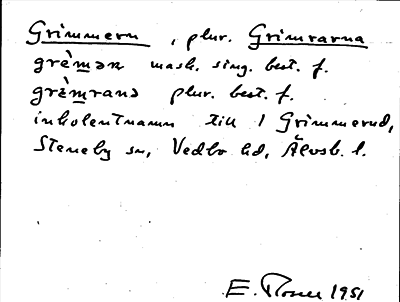 Grimmern, plur. Grimrarna
grèmən mask. sing. best. f.
grèmrana plur. best. f.
inkolentnamn till 1 Grimmerud,
Steneby sn, Vedbo hd, Älvsb. l.
E. 1951